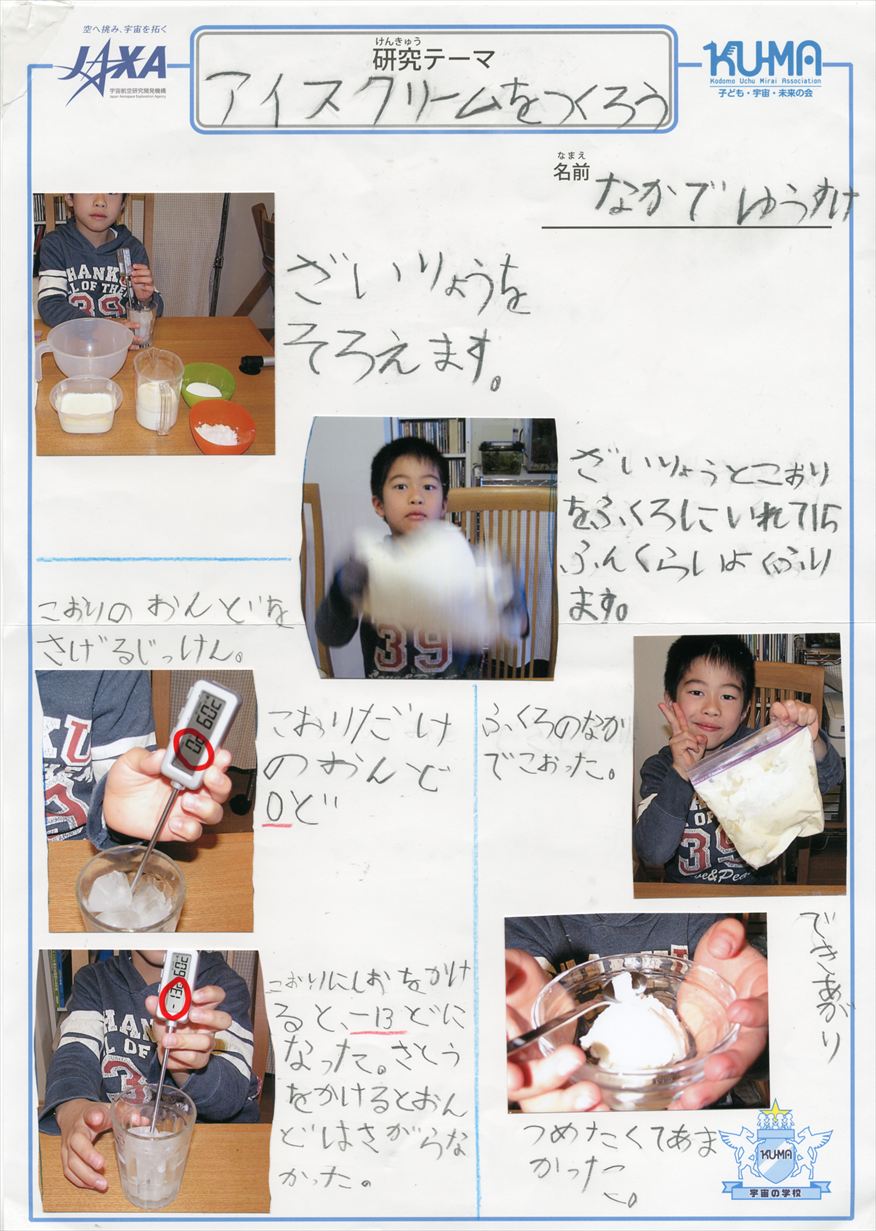 空へ挑み、宇宙を拓く
JAXA
宇宙航空研究開発機構
Japan Aerospace Exploration Agency
けんきゅう
研究テーマ
アイスクリームをつくろう
KU-MA
Kodomo Uchu Mirai Association
子ども・宇宙・未来の会
なまえ
名前
なかで ゆうすけ
THANK
ALL OF THE
39
ざいりょうを
そろえます。
ざいりょうとこおり
をふくろにいれて15
ふんくらいよくふり
ます。
39
こおりの おんどを
さげるじっけん。
こおりだけ
のおんど
0ど
ふくろのなか
でこおった。
39
ve&Pea
こおりにしおをかけ
ると、-13どに
なった。さとう
をかけるとおん
どはさがらな
かった。
できあがり
つめたくてあま
かった。
KU-MA
宇宙の学校